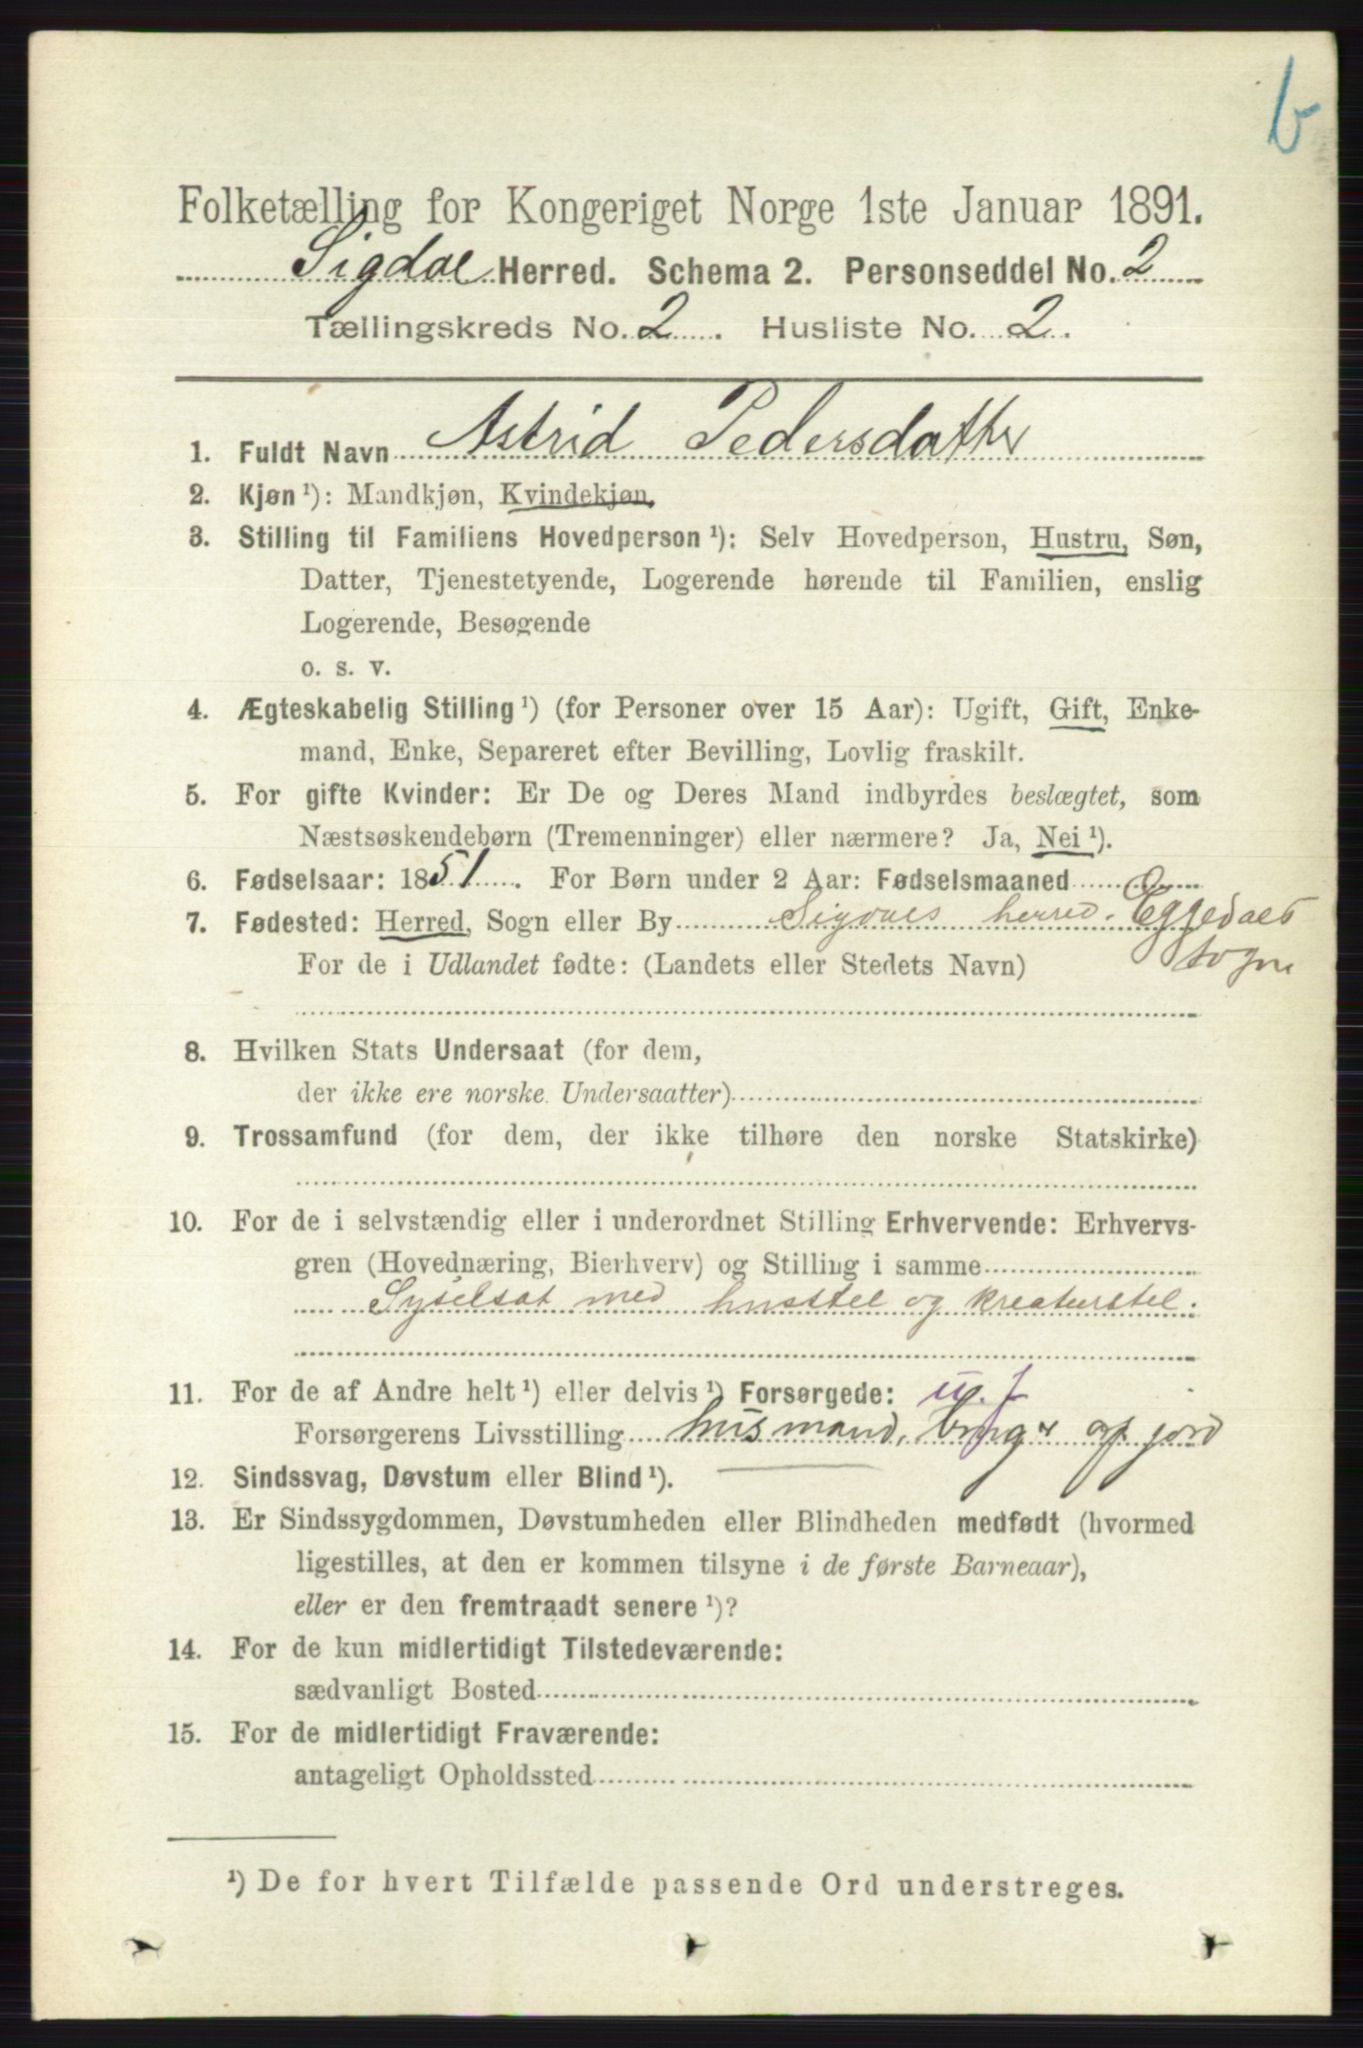 b
Folketælling for Kongeriget Norge 1ste Januar 1891.
Sigdal Herred. Schema 2. Personseddel No. 2
Tællingskreds No. 2. Husliste No. 2.
1. Fuldt Navn Astrid Pedersdatter
2. Kjøn ¹): Mandkjøn, Kvindekjøn.
3. Stilling til Familiens Hovedperson ¹): Selv Hovedperson, Hustru, Søn,
Datter, Tjenestetyende, Logerende hørende til Familien, enslig
Logerende, Besøgende
o. s. v.
4. Ægteskabelig Stilling ¹) (for Personer over 15 Aar): Ugift, Gift, Enke-
mand, Enke, Separeret efter Bevilling, Lovlig fraskilt.
5. For gifte Kvinder: Er De og Deres Mand indbyrdes beslægtet, som
Næstsøskendebørn (Tremenninger) eller nærmere? Ja, Nei ¹).
6. Fødselsaar: 1851. For Børn under 2 Aar: Fødselsmaaned
7. Fødested: Herred, Sogn eller By Sigdals herred. Eggedals
sogn
For de i Udlandet fødte: (Landets eller Stedets Navn)
8. Hvilken Stats Undersaat (for dem,
der ikke ere norske Undersaatter)
9. Trossamfund (for dem, der ikke tilhøre den norske Statskirke)
10. For de i selvstændig eller i underordnet Stilling Erhvervende: Erhvervs-
gren (Hovednæring, Bierhverv) og Stilling i samme
Syselsat med husstel og kreaturstel.
11. For de af Andre helt ¹) eller delvis ¹) Forsørgede:
Forsørgerens Livsstilling husmand, bruger af jord
12. Sindssvag, Døvstum eller Blind ¹).
13. Er Sindssygdommen, Døvstumheden eller Blindheden medfødt (hvormed
ligestilles, at den er kommen tilsyne i de første Barneaar),
eller er den fremtraadt senere ¹)?
14. For de kun midlertidigt Tilstedeværende:
sædvanligt Bosted
15. For de midlertidigt Fraværende:
antageligt Opholdssted
¹) De for hvert Tilfælde passende Ord understreges.